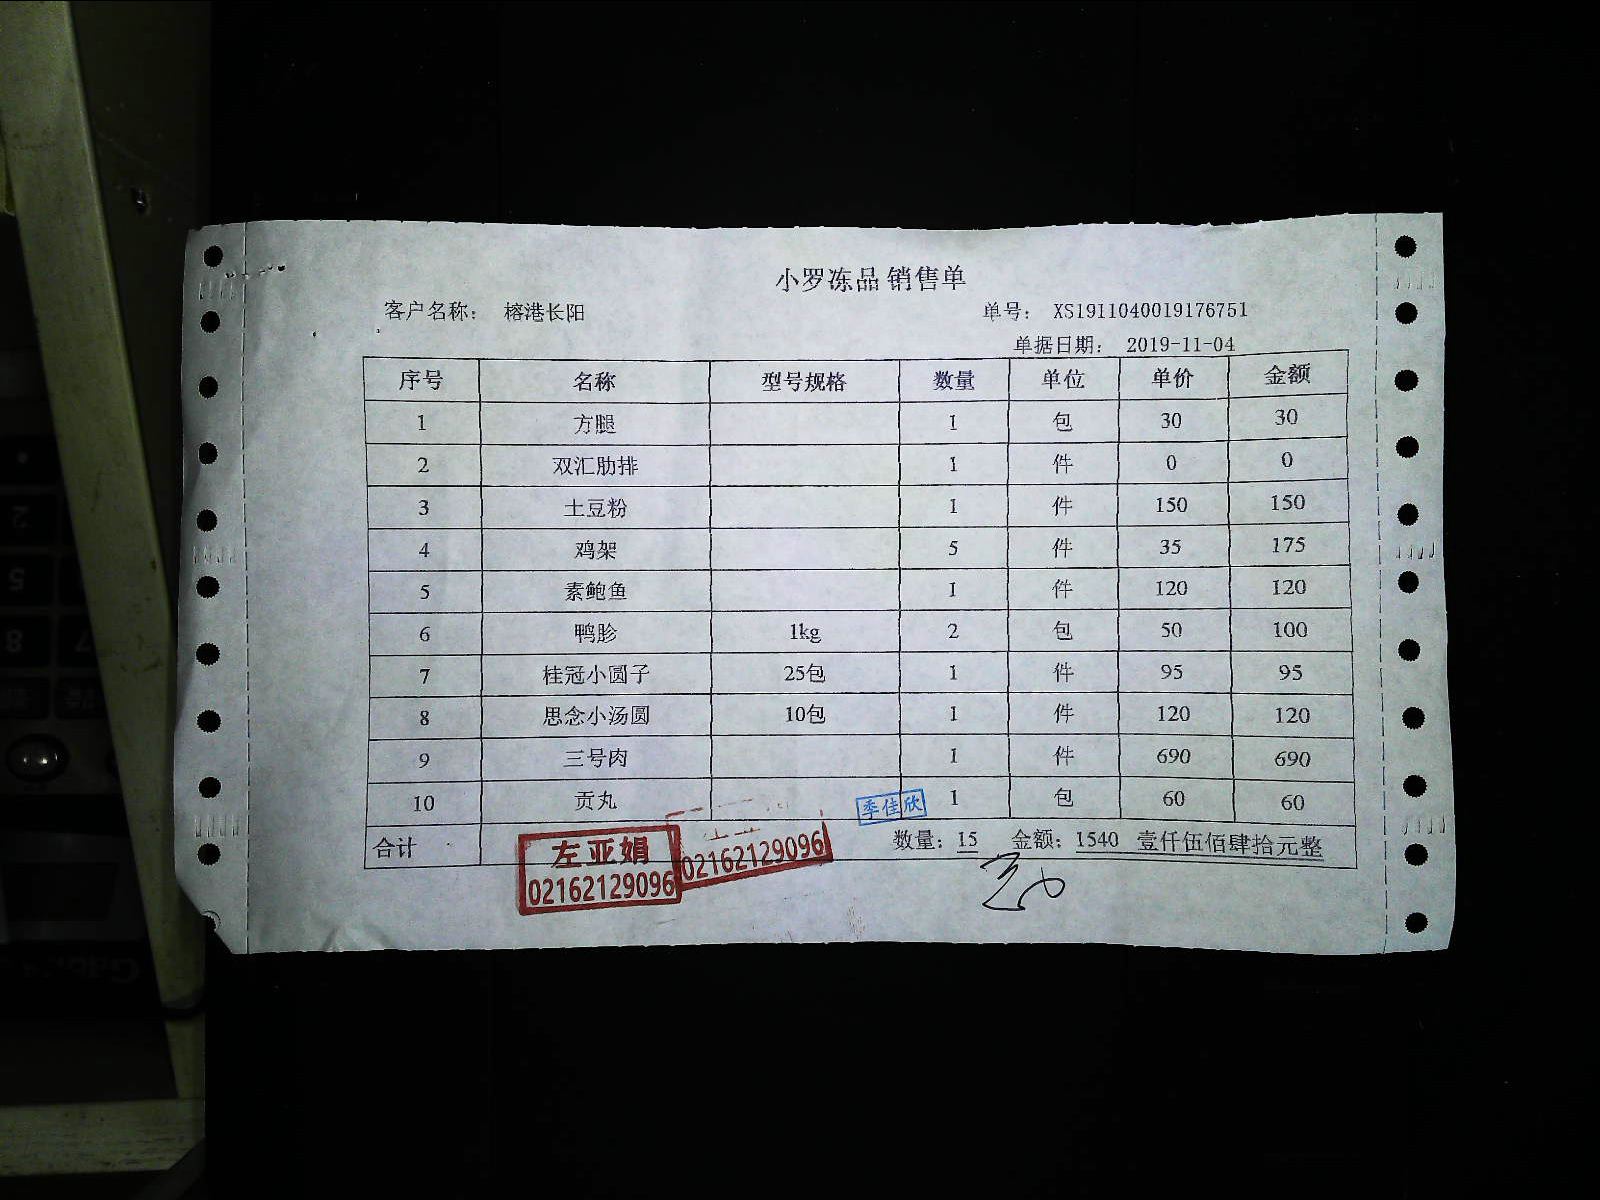 小罗冻品 销售单
客户名称: 榕港长阳 单号: XS1911040019176751
单据日期: 2019-11-04
序号 名称 型号规格 数量 单位 单价 金额
1 方腿 1 包 30 30
2 双汇肋排 1 件 0 0
3 土豆粉 1 件 150 150
4 鸡架 5 件 35 175
5 素鲍鱼 1 件 120 120
6 鸭胗 1kg 2 包 50 100
7 桂冠小圆子 25包 1 件 95 95
8 思念小汤圆 10包 1 件 120 120
9 三号肉 1 件 690 690
10 贡丸 1 包 60 60
季佳欣
合计 数量: 15 金额: 1540 壹仟伍佰肆拾元整
左亚娟
02162129096
02162129096